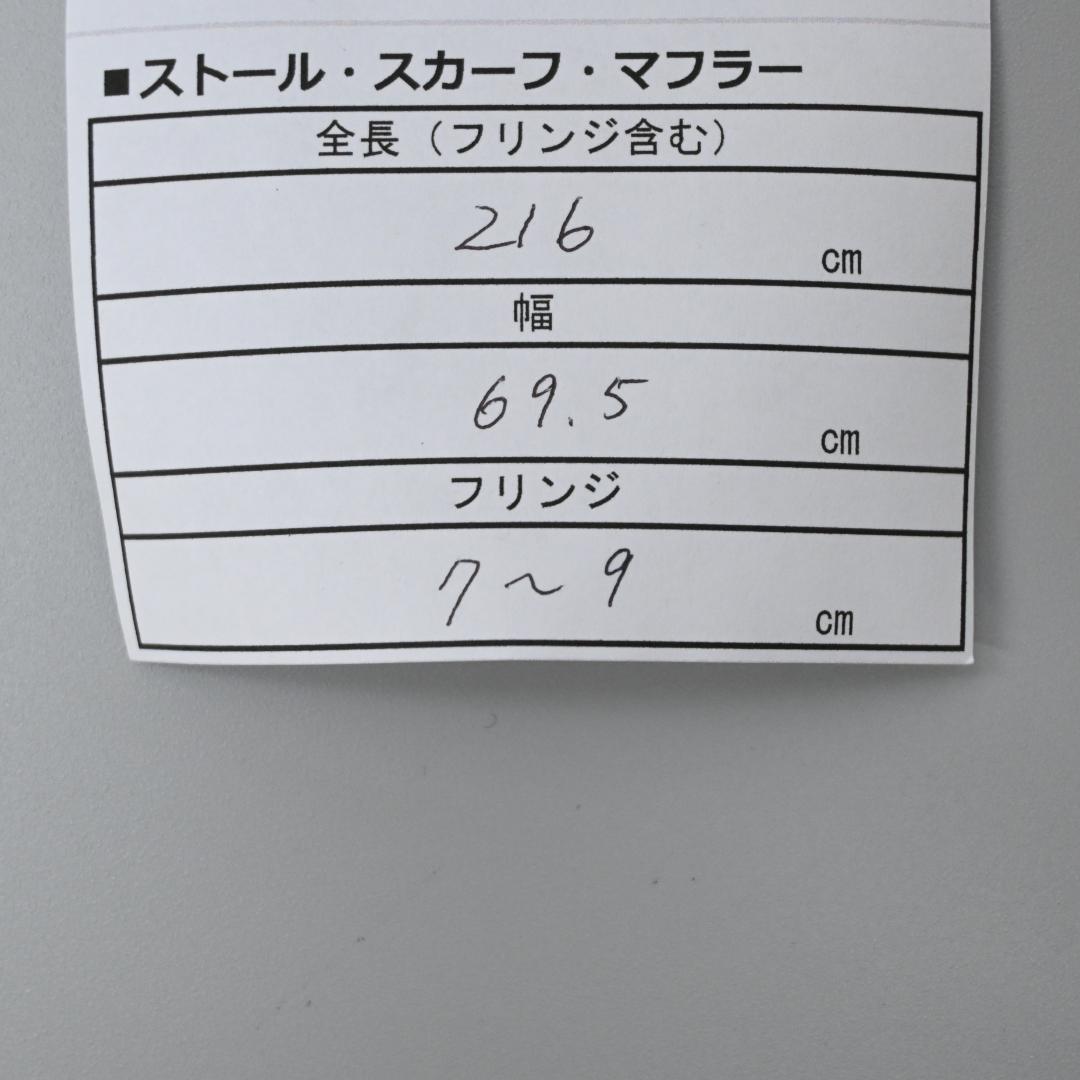 ■ストール・スカーフ・マフラー
全長（フリンジ含む）
216 cm
幅
69.5 cm
フリンジ
7～9 cm